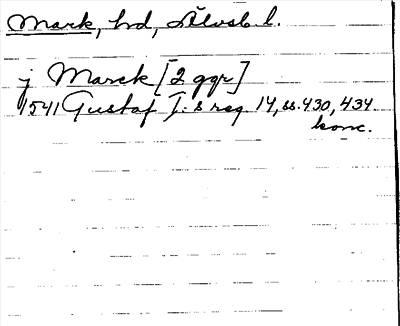 Mark, hd, Älvsb. l.
j Marck [2 ggr]
1541 Gustaf I:s reg. 14, ss. 430, 434
konc.